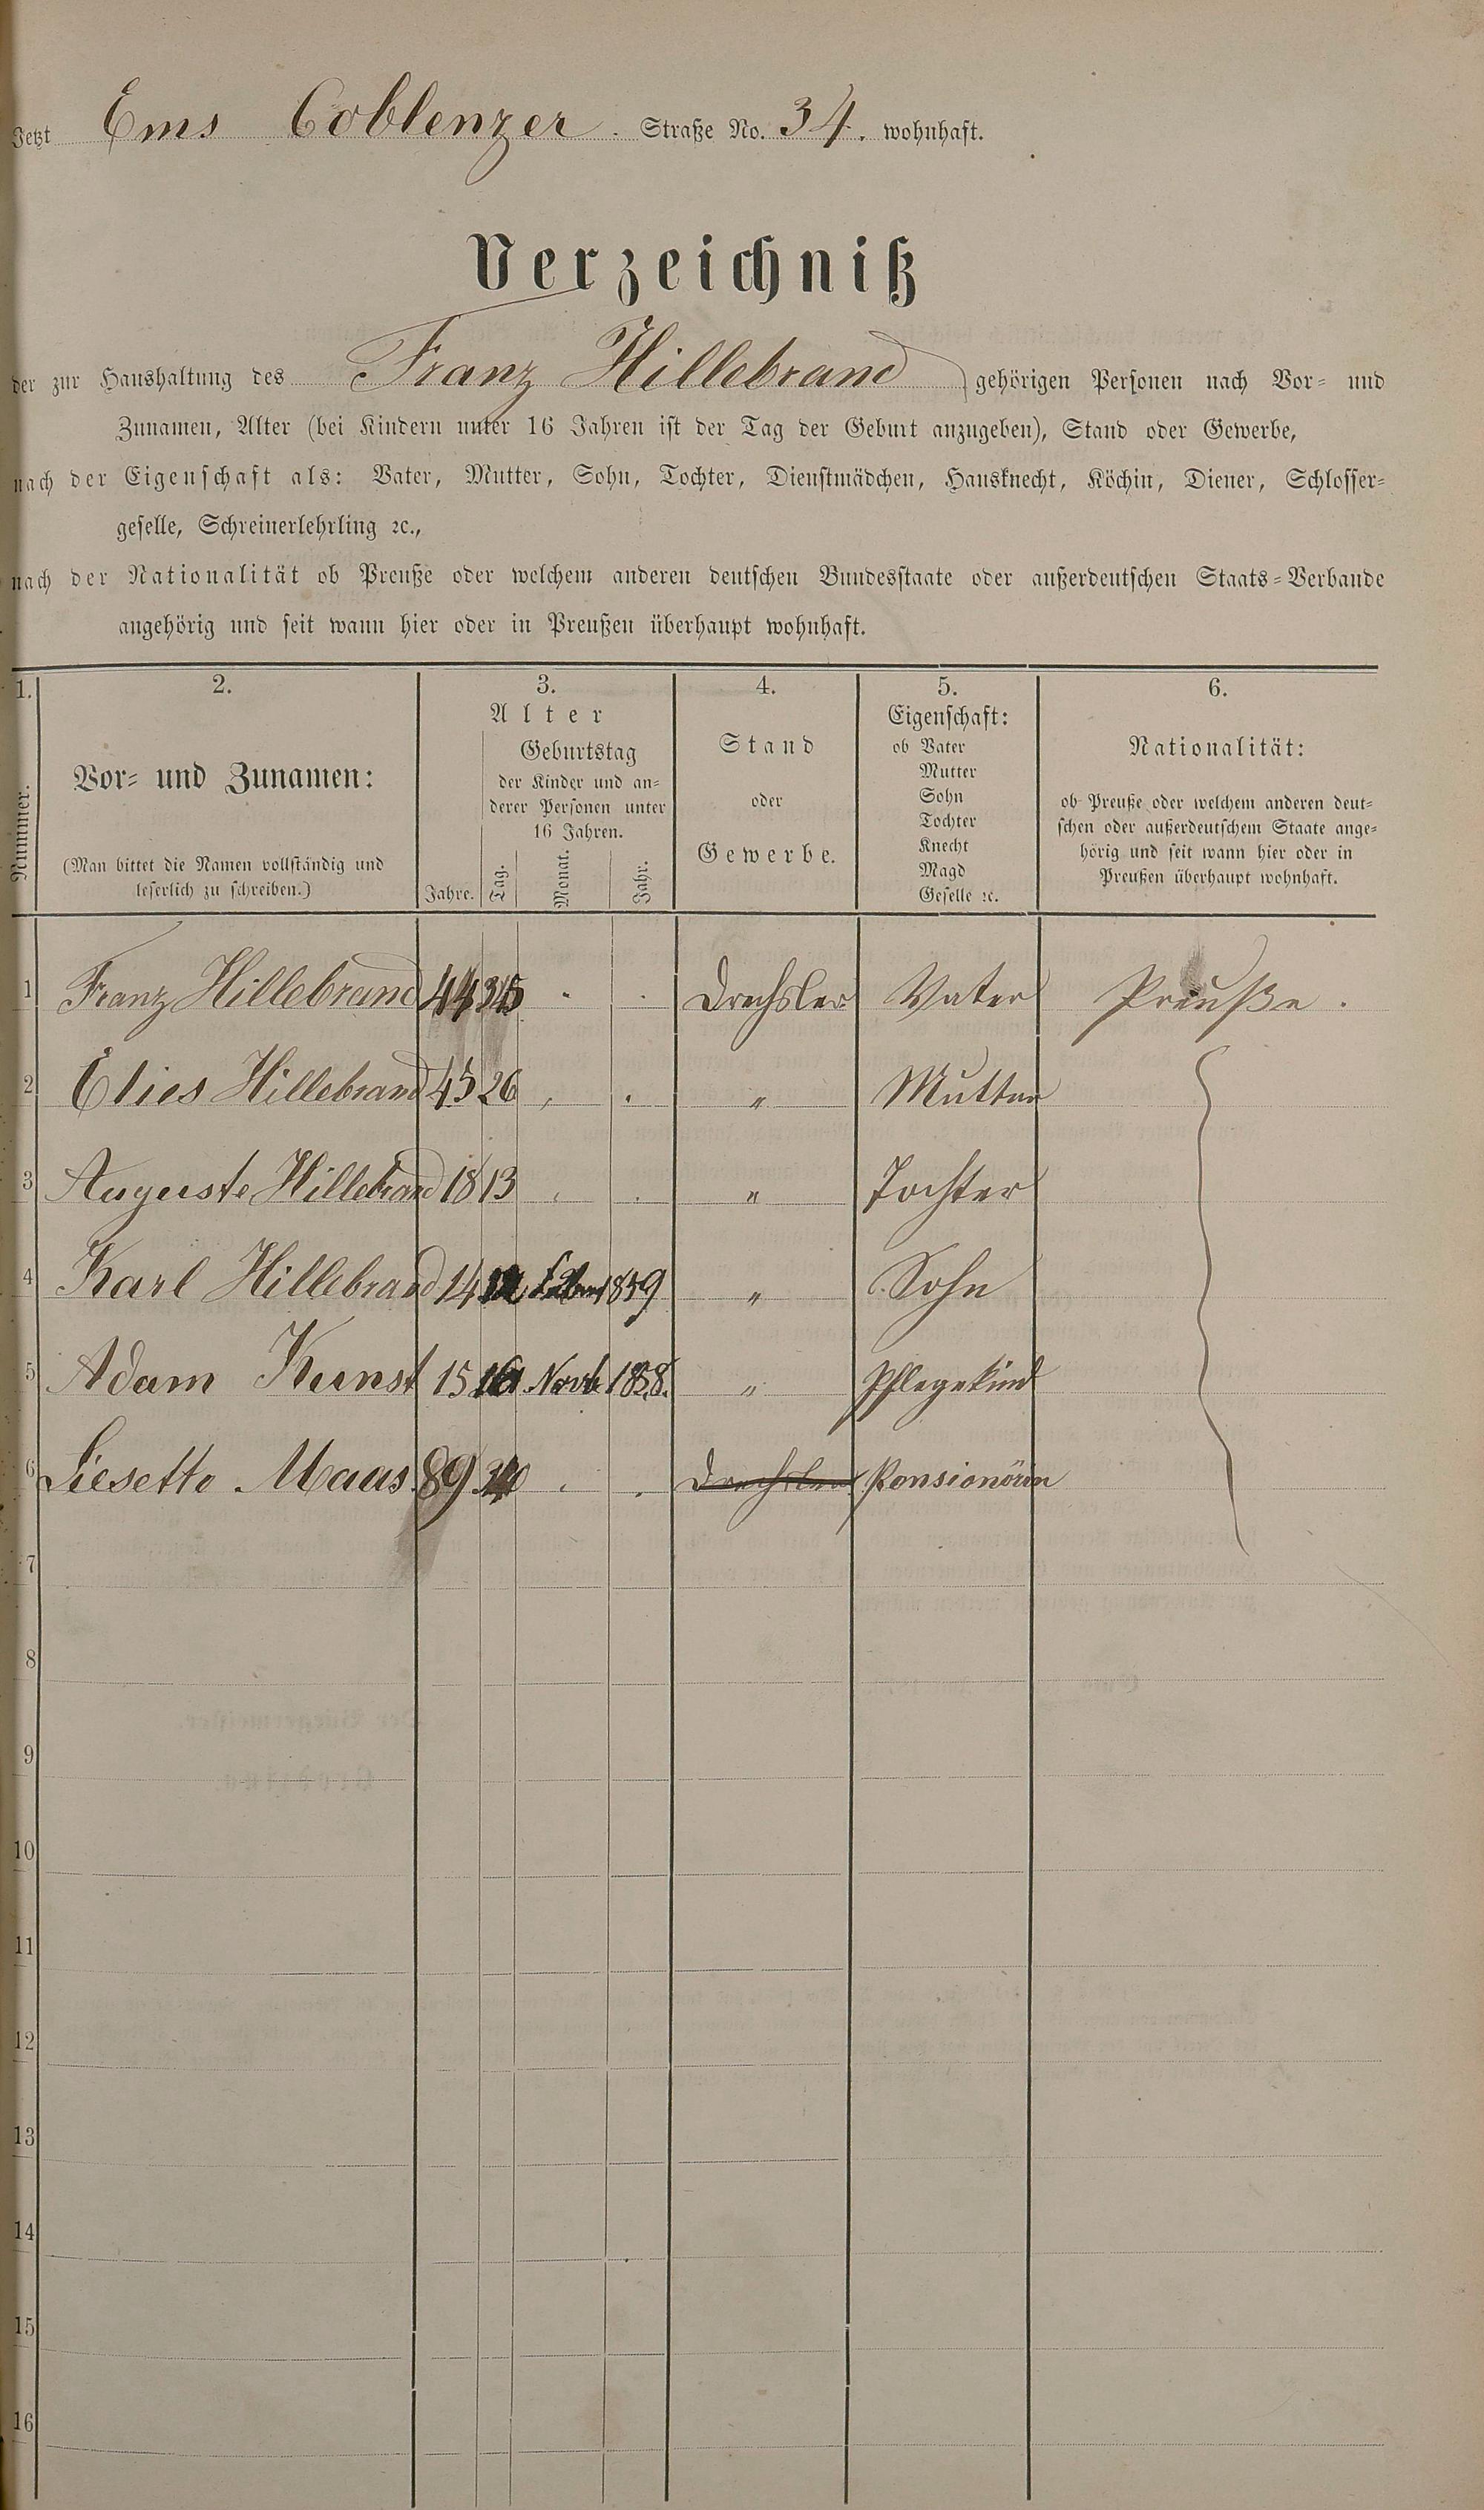 Jetzt Ems Coblenzer Straße No. 34. wohnhaft.
Verzeichniß
der zur Haushaltung des Franz Hillebrand gehörigen Personen nach Vor- und
Zunamen, Alter (bei Kindern unter 16 Jahren ist der Tag der Geburt anzugeben), Stand oder Gewerbe,
nach der Eigenschaft als: Vater, Mutter, Sohn, Tochter, Dienstmädchen, Hausknecht, Köchin, Diener, Schlosser-
geselle, Schreinerlehrling ꝛc.,
nach der Nationalität ob Preuße oder welchem anderen deutschen Bundesstaate oder außerdeutschen Staats-Verbande
angehörig und seit wann hier oder in Preußen überhaupt wohnhaft.
1. 2. 3. 4. 5. 6.
Nummer.
Vor- und Zunamen:
(Man bittet die Namen vollständig und
leserlich zu schreiben.)
Alter
Jahre.
Geburtstag
der Kinder und an-
derer Personen unter
16 Jahren.
Tag. Monat. Jahr.
Stand
oder
Gewerbe.
Eigenschaft:
ob Vater
Mutter
Sohn
Tochter
Knecht
Magd
Geselle ꝛc.
Nationalität:
ob Preuße oder welchem anderen deut-
schen oder außerdeutschem Staate ange-
hörig und seit wann hier oder in
Preußen überhaupt wohnhaft.
1 Franz Hillebrand 44 Drechsler Vater Preuße.
2 Elies Hillebrand 45 26 " Mutter
3 Auguste Hillebrand 18 13 " Tochter
4 Karl Hillebrand 14 1859 " Sohn
5 Adam Kunst 15 Novb 1858. " Pflegekind
6 Liesette Maas 89 Drechsler Pensionärin
7
8
9
10
11
12
13
14
15
16